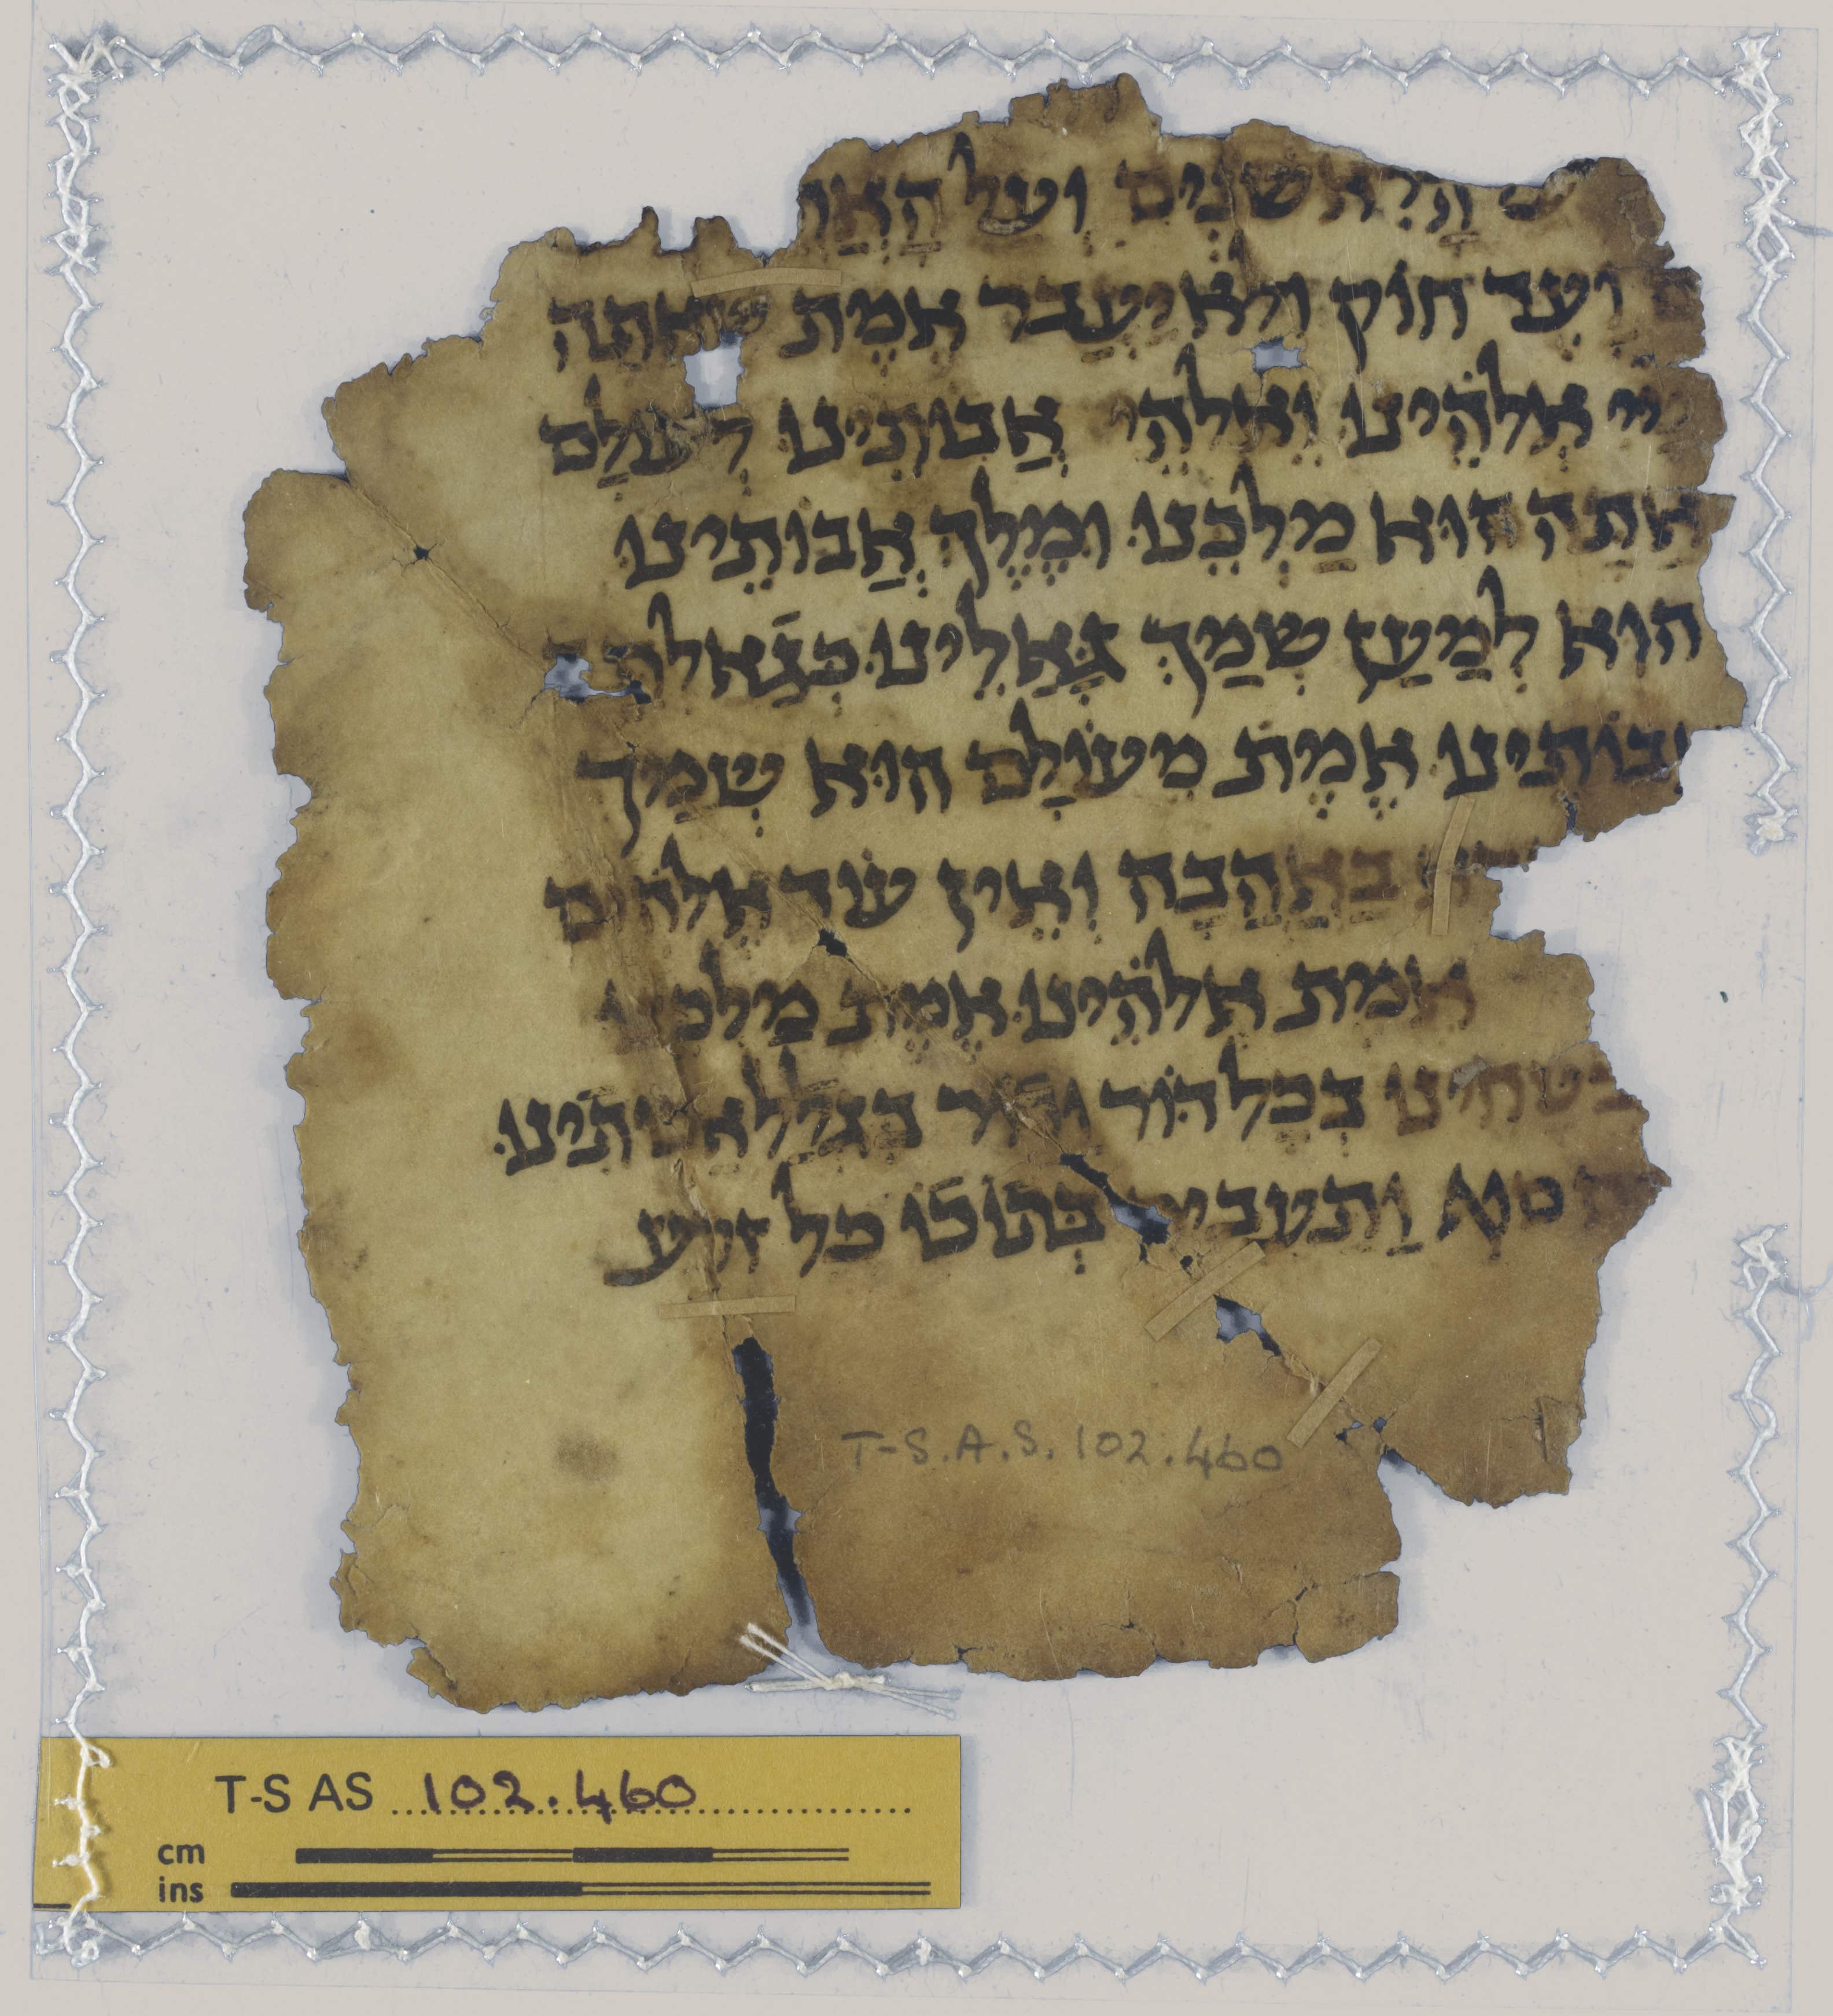 הראשנים ועל
ועד חוק ולא יעבר אמת שאתה
ייי אלהינו ואלהי אבותינו לעולם
אתה הוא מלכנו ומלך אבותינו
הוא למען שמך גאלינו כגאלתה
אבותינו אמת מעולם הוא שמך
באהבה ואין עוד אלהים
אמת אלהינו אמת מלכנו
בטחינו בכל דור ודור בגלל אבותינו
ותעביר כל זרע
T-S.A.S. 102.460
T-S AS 102.460
cm
ins